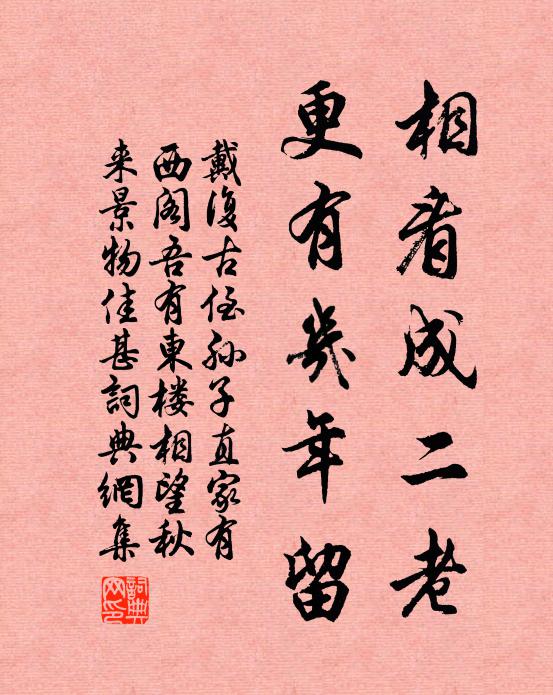 相看成二老
更有幾年留
戴復古侄孙子直家有
西阁吾有東楼相望秋
来景物佳甚詞典網集
詞典
网印